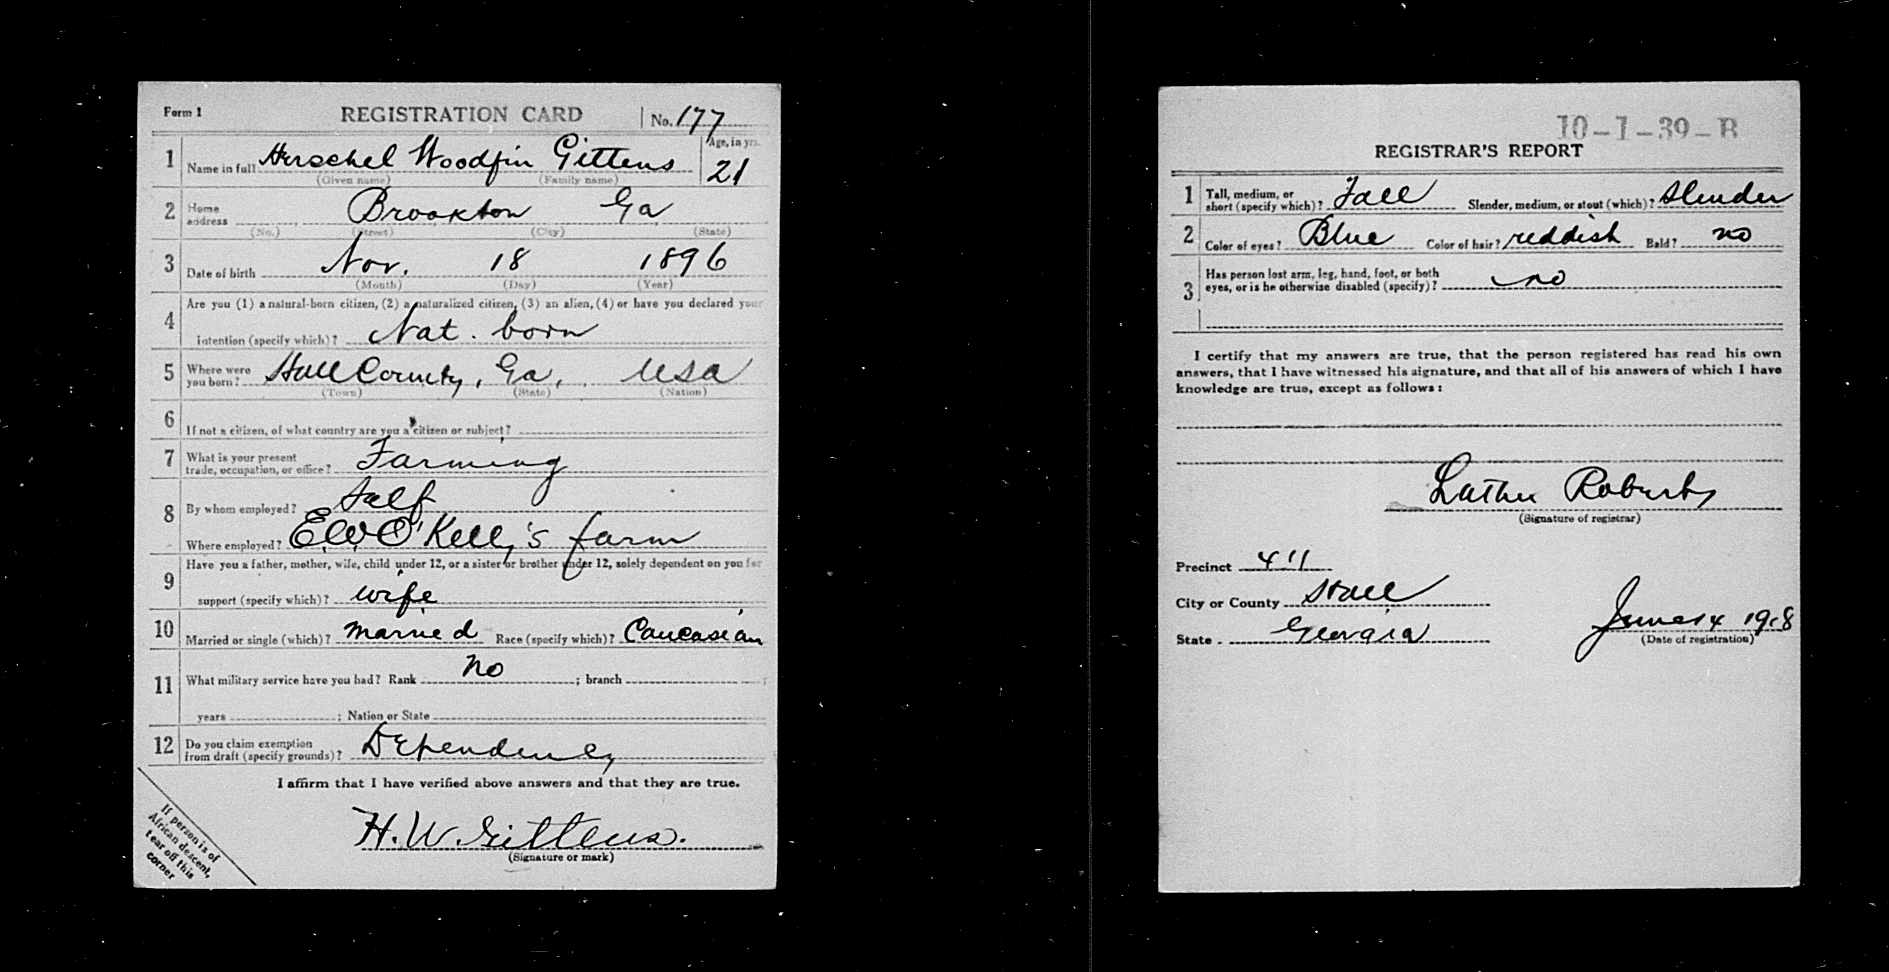 Form 1 REGISTRATION CARD No. 177
1 Name in full Herschel Woodfin Gittens Age, in yrs. 21
(Given name) (Family name)
2 Home address Brookton Ga
(No.) (Street) (City) (State)
3 Date of birth Nov. 18 1896
(Month) (Day) (Year)
4 Are you (1) a natural-born citizen, (2) a naturalized citizen, (3) an alien, (4) or have you declared your
intention (specify which)? Nat. born
5 Where were you born? Hall County, Ga, USA
(Town) (State) (Nation)
6 If not a citizen, of what country are you a citizen or subject?
7 What is your present trade, occupation, or office? Farming
8 By whom employed? Self
Where employed? E.W. O'Kelly's farm
9 Have you a father, mother, wife, child under 12, or a sister or brother under 12, solely dependent on you for
support (specify which)? wife
10 Married or single (which)? married Race (specify which)? Caucasian
11 What military service have you had? Rank no ; branch ;
years ; Nation or State
12 Do you claim exemption from draft (specify grounds)? Dependency
I affirm that I have verified above answers and that they are true.
H. W. Gittens.
(Signature or mark)
If person is of
African descent,
tear off this
corner
10-1-39-B
REGISTRAR'S REPORT
1 Tall, medium, or short (specify which)? Tall Slender, medium, or stout (which)? Slender
2 Color of eyes? Blue Color of hair? reddish Bald? no
3 Has person lost arm, leg, hand, foot, or both eyes, or is he otherwise disabled (specify)? no
I certify that my answers are true, that the person registered has read his own
answers, that I have witnessed his signature, and that all of his answers of which I have
knowledge are true, except as follows:
Luther Roberts
(Signature of registrar)
Precinct 411
City or County Hall
State Georgia June 14 1918
(Date of registration)